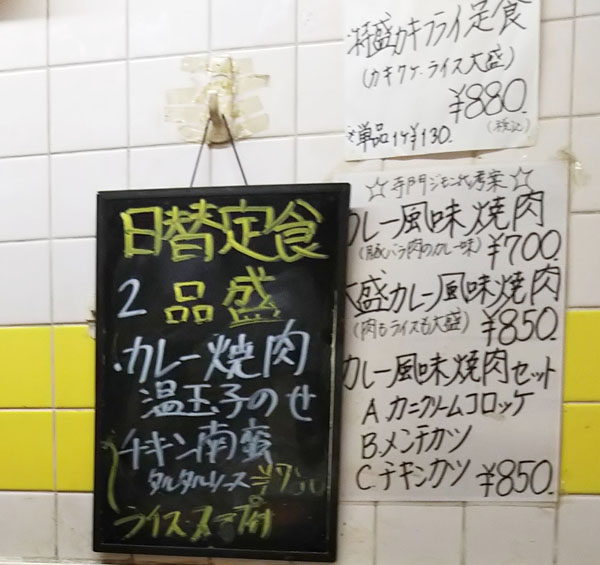 日替定食
2品盛
・カレー焼肉
温玉子のせ
チキン南蛮
タルタルソース
ライス・スープ付
・特盛カキフライ定食
(カキ7ケ・ライス大盛)
¥880
(税込)
*単品1ケ¥130
☆寺門ジモン氏考案☆
カレー風味焼肉
(豚バラ肉のカレー味) ¥700
大盛カレー風味焼肉
(肉もライスも大盛) ¥850
カレー風味焼肉セット
A カニクリームコロッケ
B.メンチカツ
C.チキンカツ ¥850